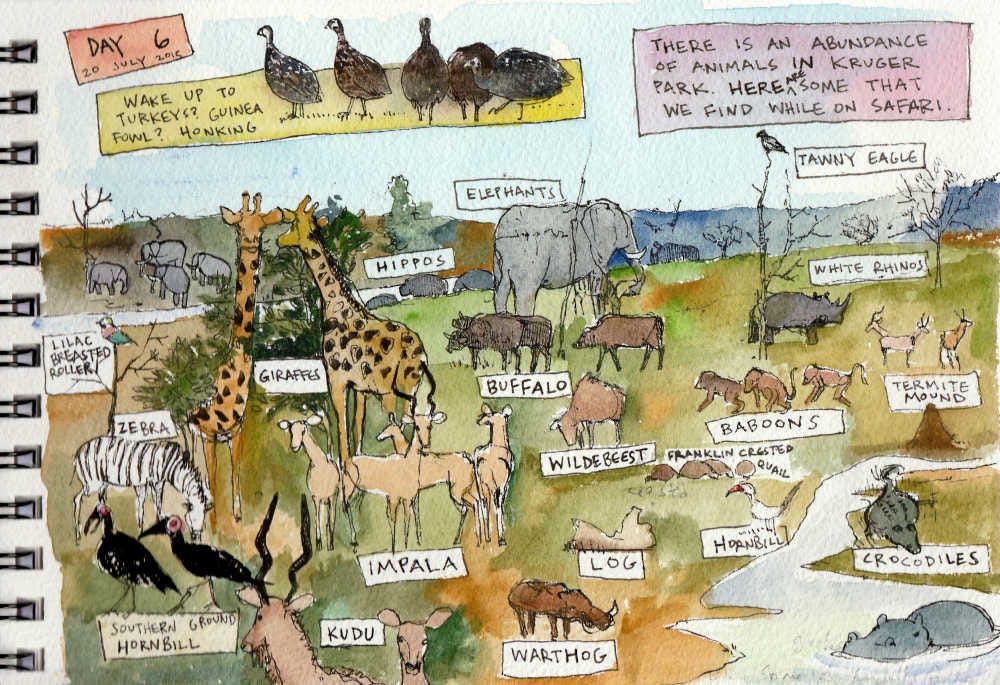 DAY 6
20 JULY 2015
WAKE UP TO
TURKEYS? GUINEA
FOWL? HONKING
THERE IS AN ABUNDANCE
OF ANIMALS IN KRUGER
PARK. HERE ARE SOME THAT
WE FIND WHILE ON SAFARI.
TAWNY EAGLE
ELEPHANTS
HIPPOS
WHITE RHINOS
LILAC
BREASTED
ROLLER
GIRAFFES
BUFFALO
TERMITE
MOUND
ZEBRA
BABOONS
WILDEBEEST
FRANKLIN CRESTED
QUAIL
HORNBILL
CROCODILES
IMPALA
LOG
SOUTHERN GROUND
HORNBILL
KUDU
WARTHOG